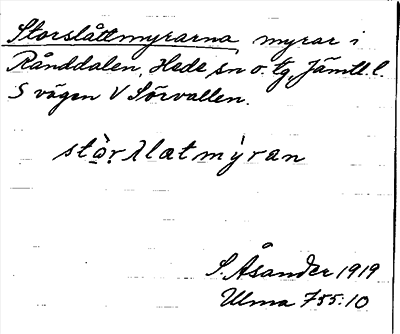 Storslåttmyrarna, myrar i
Rånddalen, Hede sn o. tg, Jämtl. l.
S vägen V Sörvallen.
stò̱ṛʌlatmỳran
S. Åsander 1919
Ulma 755:10